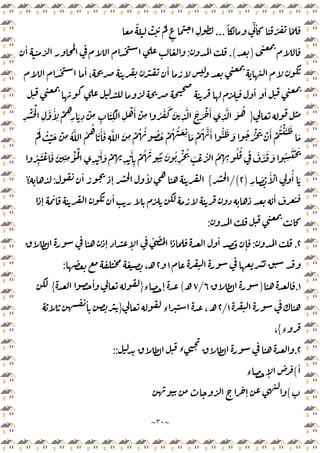 فلما تفرقنا كأني ومالكا ... لطول اجتماع لم نبت ليلة معا
فاللام بمعنى (بعد). قلت المدرون: والغالب على استخدام اللام في المحاور الزمنية أن
تكون لام النهاية بمعنى بعد وليس لازما أن تقترن بقرينة صريحة، أما استخدام اللام
بمعنى قبل أو أول فيلزم لها قرينة صحيحة صريحة لزوما للتدليل على كونها بمعنى قبل
مثل قوله تعالى{هُوَ الَّذِي أَخْرَجَ الَّذِينَ كَفَرُوا مِنْ أَهْلِ الْكِتَابِ مِنْ دِيَارِهِمْ لِأَوَّلِ الْحَشْرِ
مَا ظَنَنْتُمْ أَنْ يَخْرُجُوا وَظَنُّوا أَنَّهُمْ مَانِعَتُهُمْ حُصُونُهُمْ مِنَ اللَّهِ فَأَتَاهُمُ اللَّهُ مِنْ حَيْثُ لَمْ
يَحْتَسِبُوا وَقَذَفَ فِي قُلُوبِهِمُ الرُّعْبَ يُخْرِبُونَ بُيُوتَهُمْ بِأَيْدِيهِمْ وَأَيْدِي الْمُؤْمِنِينَ فَاعْتَبِرُوا
يَا أُولِي الْأَبْصَارِ (٢)/الحشر} القرينة هنا هي لأول الحشر إذ يجوز أن تقول: لذهابه
فتعرف أنه بعد ذهابه بدون قرينة لازمة لكن يلزم بلا ريب أن تكون القرينة قائمة إذا
كانت بمعنى قبل قلت المدرون:
٢. قلت المدرون: فإن قصد أول العدة فلماذا المضي في الإعتداد إذن هنا في سورة الطلاق
وقد سبق تشريعها في سورة البقرة عام ١و٢هـ، بصيغة مختلفة مع بعضها:
١.فالعدة هنا (سورة الطلاق ٦/٧هـ) عدة إحصاء{لقوله تعالى وأحصوا العدة} لكن
هناك في سورة البقرة ١/٢هـ، عدة استبراء لقوله تعالى(يتربصن بأنفسهن ثلاثة
قروء)،
٢.والعدة هنا في سورة الطلاق تجيء قبل الطلاق بدليل::
أ)فرض الإحصاء
ب)والنهي عن إخراج الزوجات من بيوتهن
~٣٠~